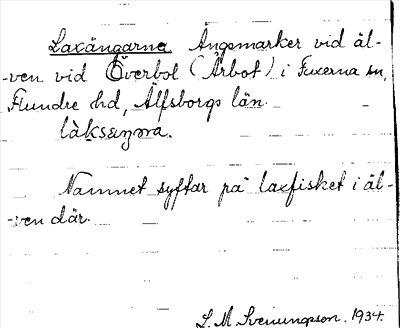 Laxängarna Ängsmarker vid äl-
-ven vid Överbol (Årbot) i Fuxerna sn,
Flundre hd, Älfsborgs län.
làksæŋɷna.
Namnet syftar på laxfisket i äl-
-ven där.
L. M. Svenungsson. 1934.